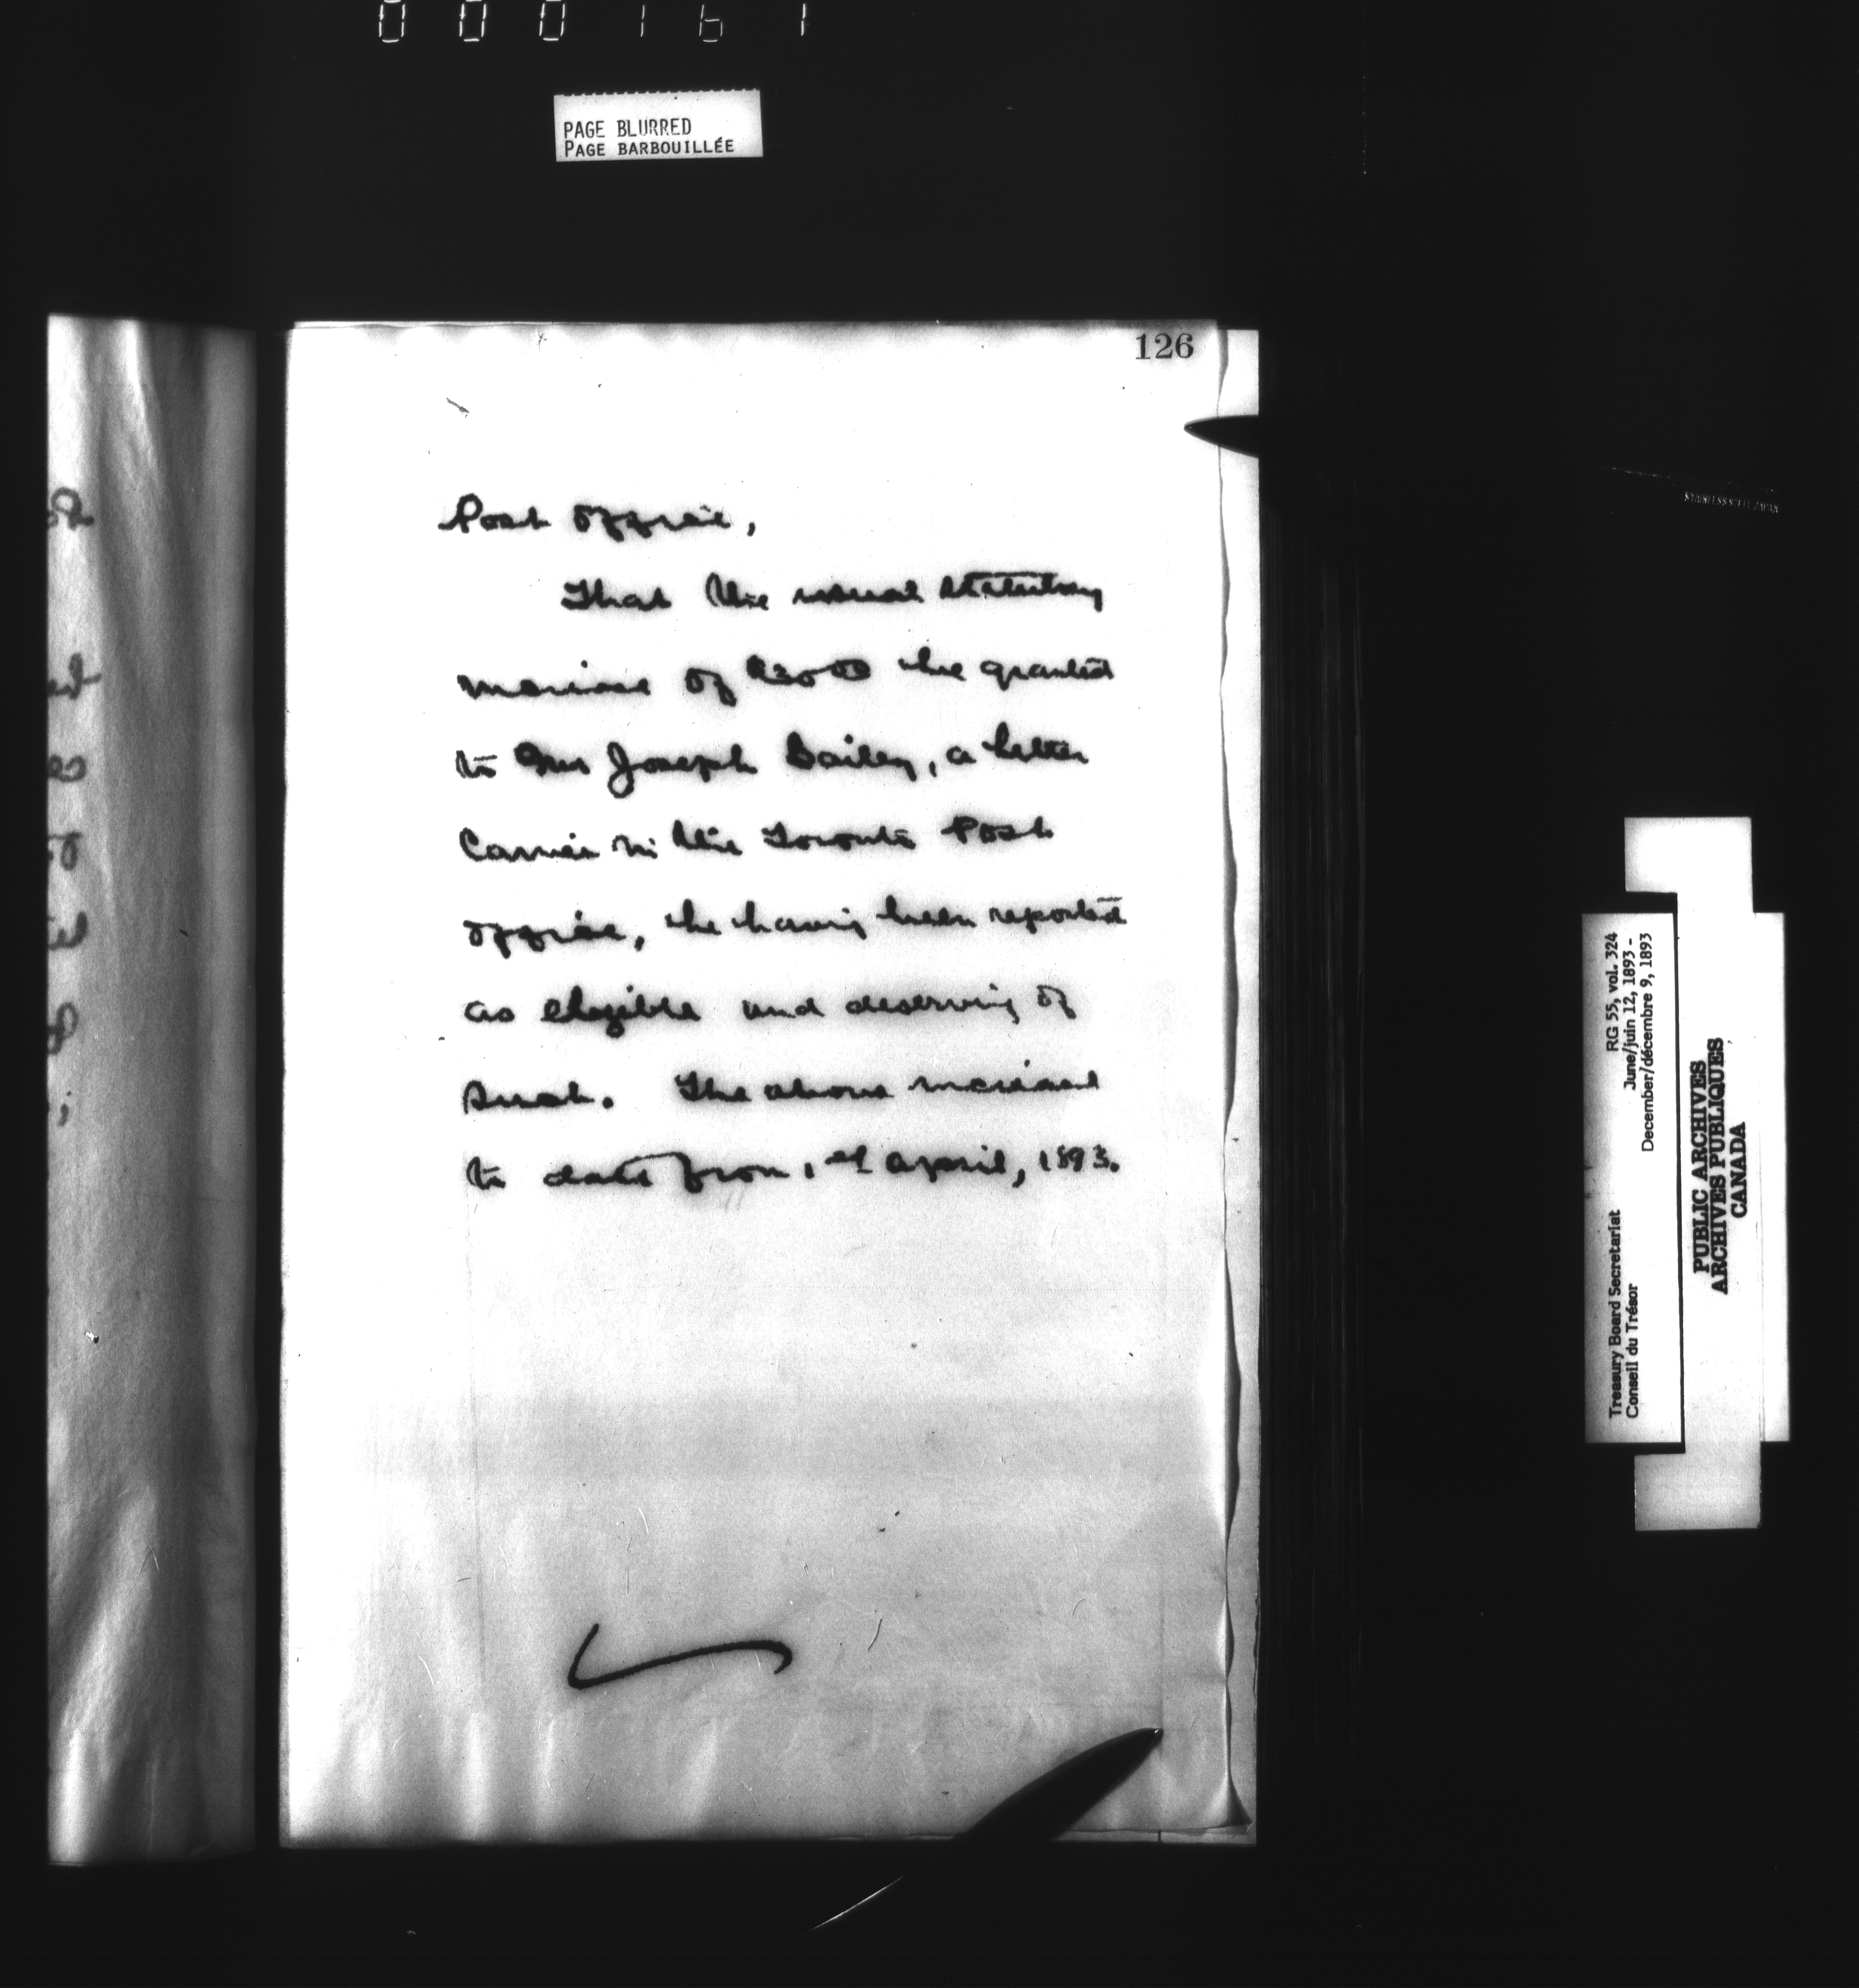 000161
PAGE BLURRED
PAGE BARBOUILLÉE
126
Post Office,
That the usual statutory
increase of $30.00 be granted
to Mr Joseph Bailey, a letter
Carrier in the Toronto Post
Office, he having been reported
as eligible and deserving of
such. The above increase
to date from 1st April, 1893.
Treasury Board Secretariat RG 55, vol. 324
Conseil du Trésor June/juin 12, 1893 -
December/décembre 9, 1893
PUBLIC ARCHIVES
ARCHIVES PUBLIQUES
CANADA